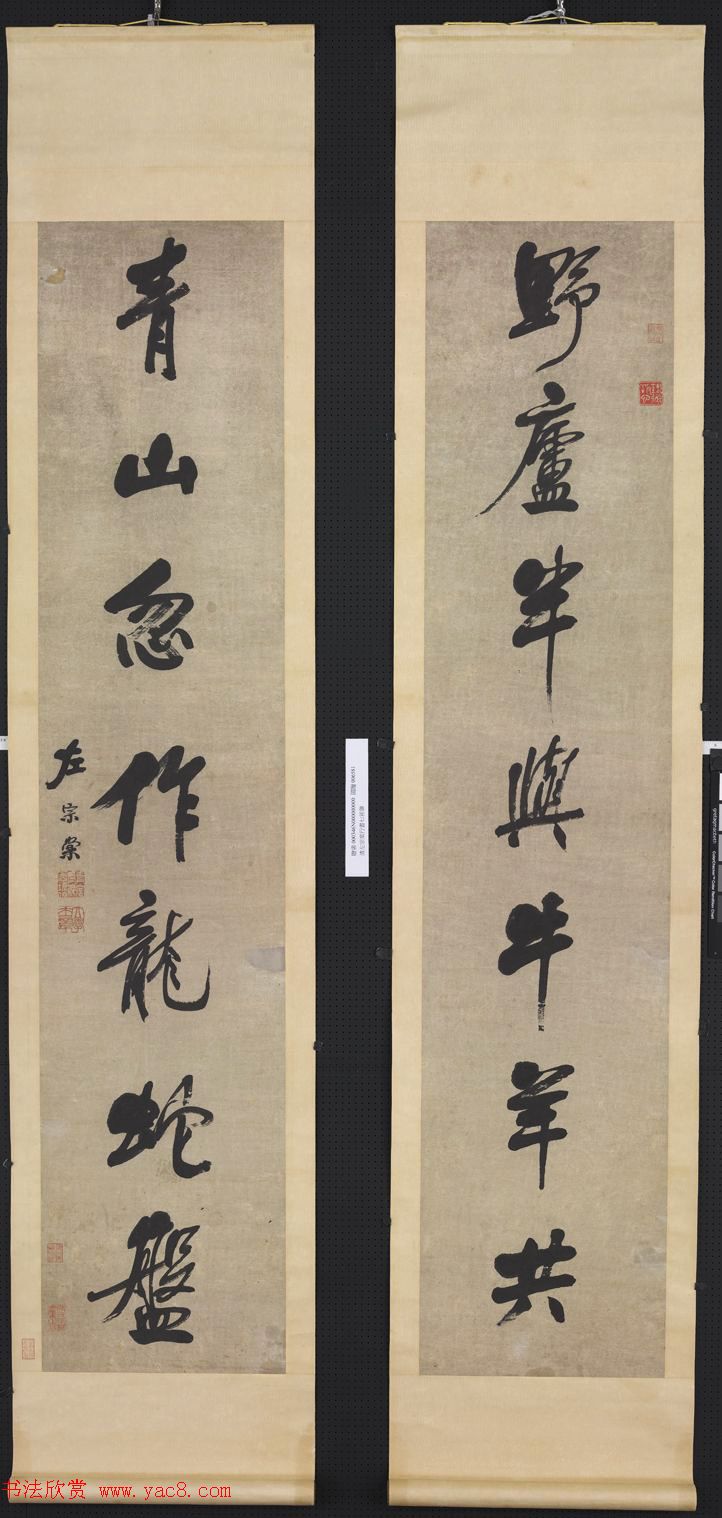 野廬半與牛羊共
青山忽作龍蛇盤
左宗棠
书法欣赏 www.yac8.com